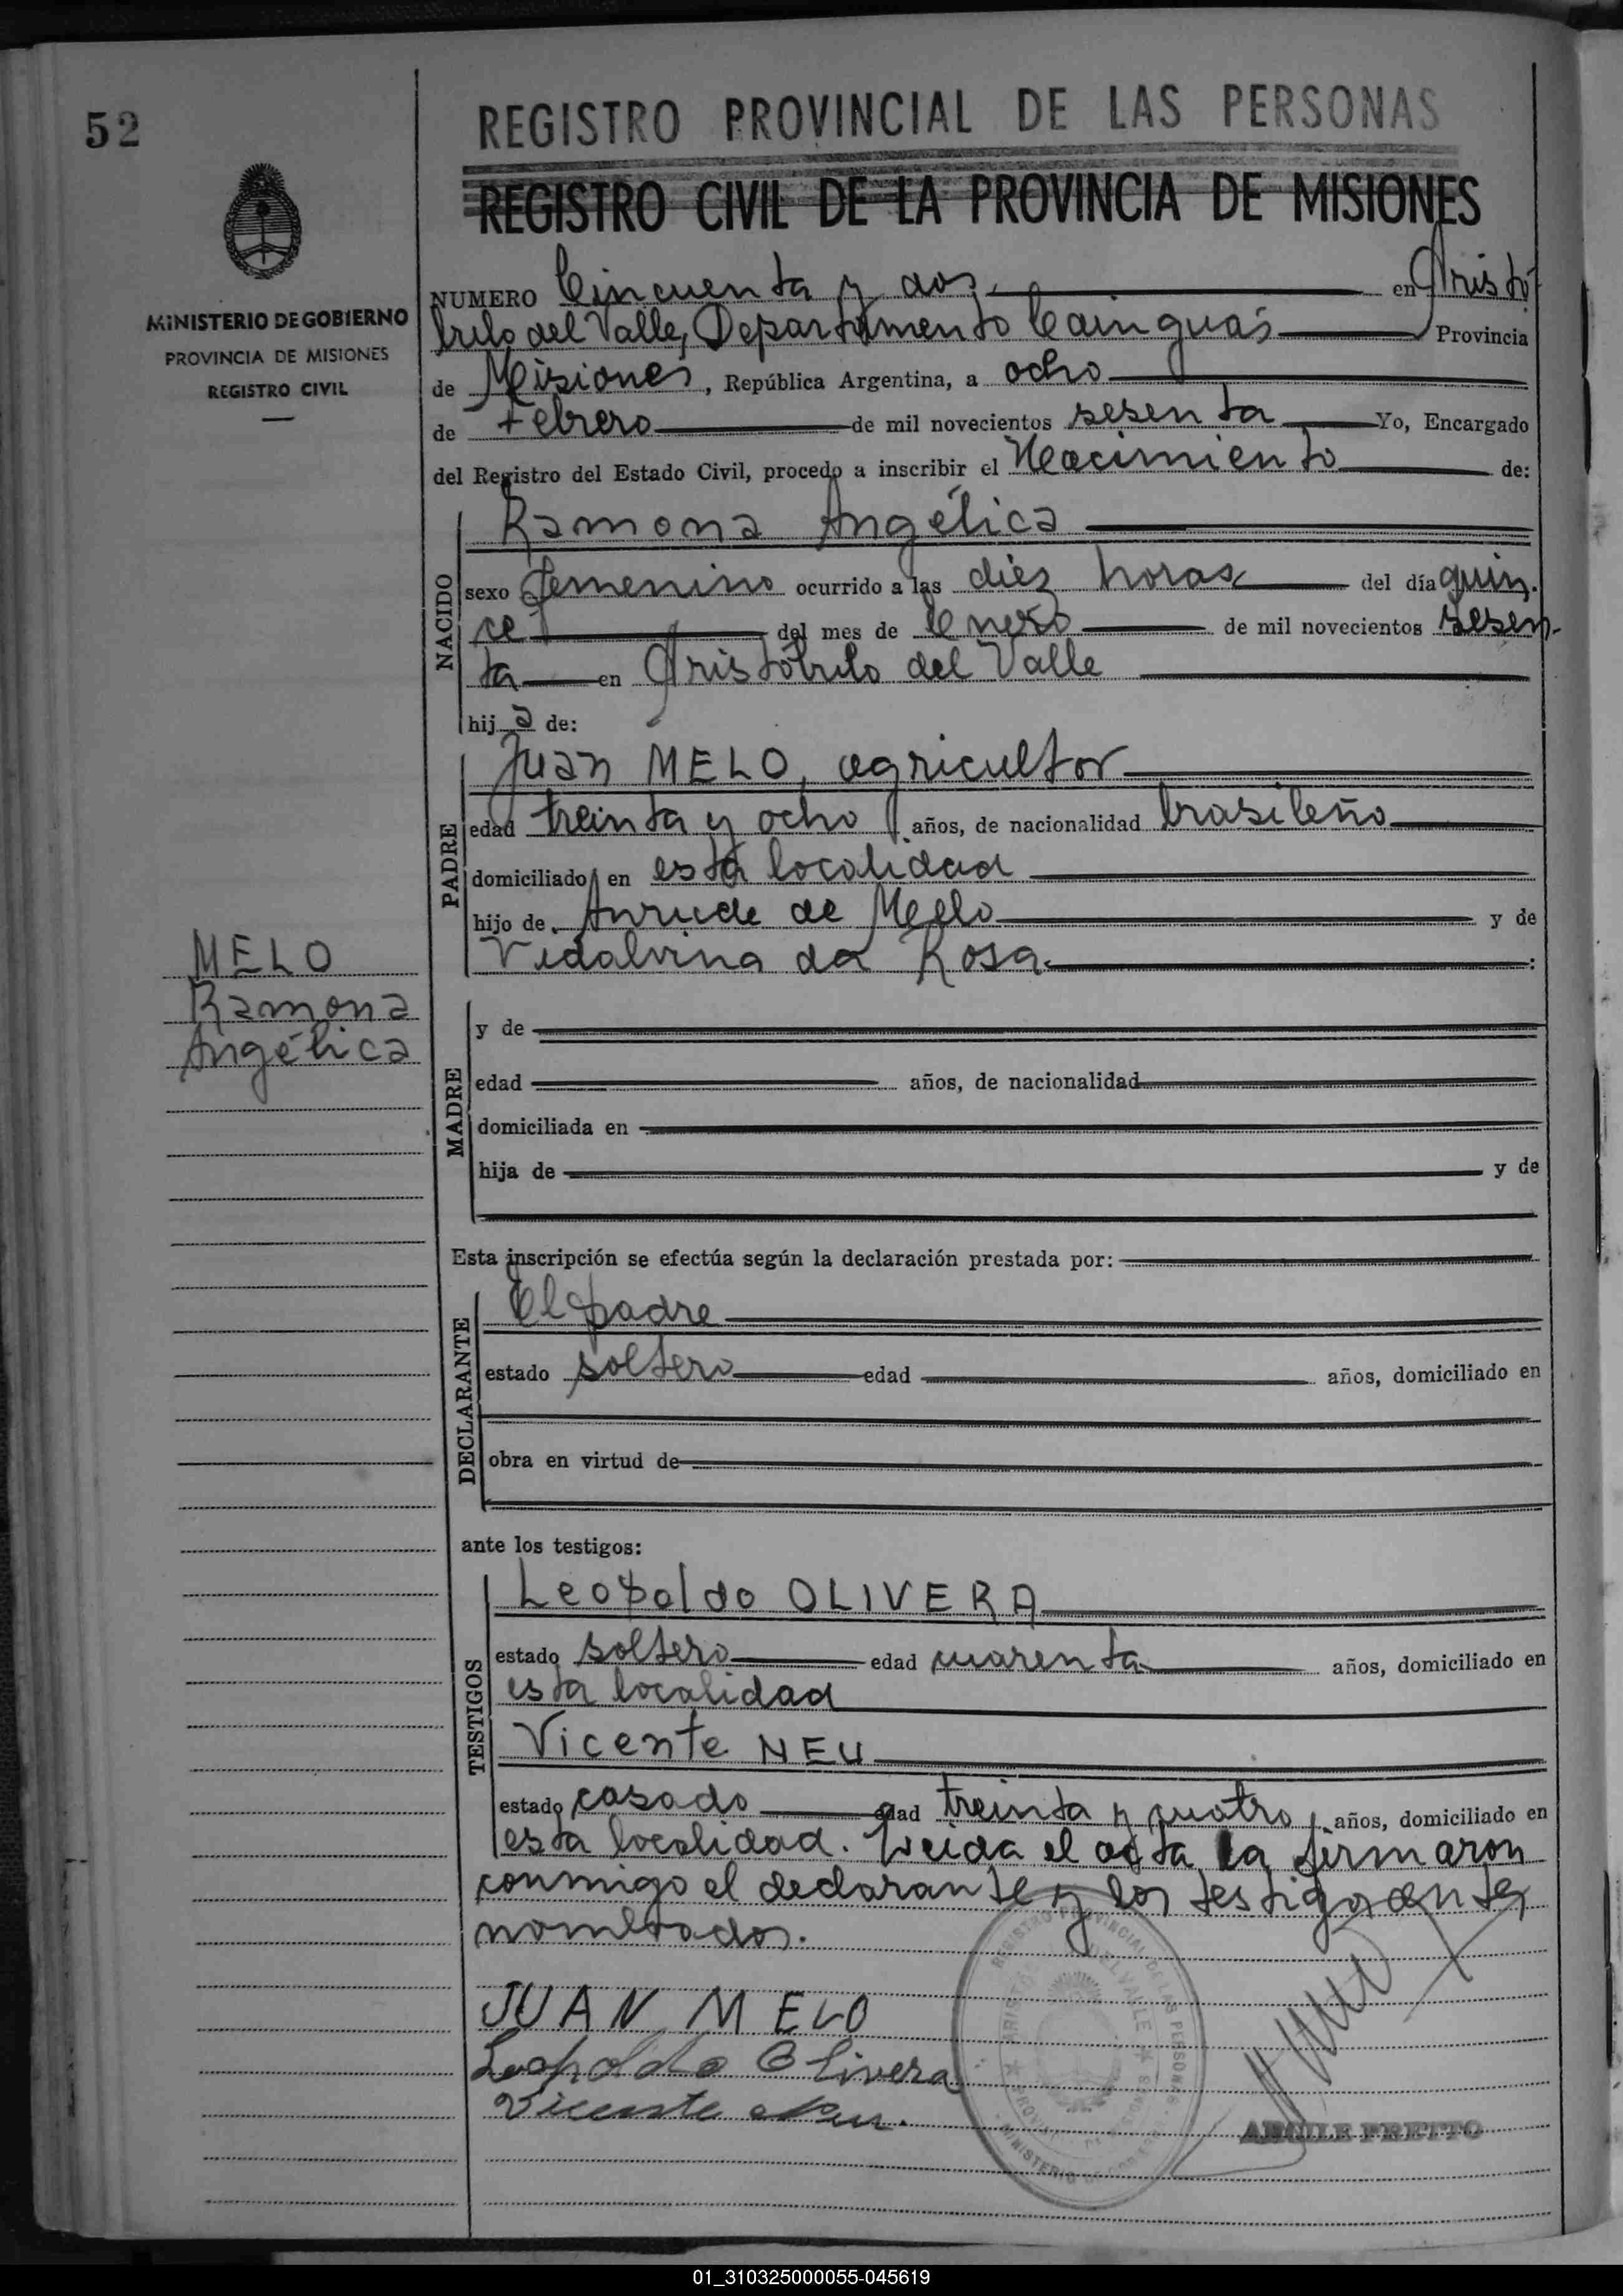 52
REGISTRO PROVINCIAL DE LAS PERSONAS
REGISTRO CIVIL DE LA PROVINCIA DE MISIONES
MINISTERIO DE GOBIERNO
PROVINCIA DE MISIONES
REGISTRO CIVIL
NUMERO Cincuenta y dos en Aristó
bulo del Valle, Departamento Cainguás Provincia
de Misiones, República Argentina, a ocho
de Febrero de mil novecientos sesenta Yo, Encargado
del Registro del Estado Civil, procedo a inscribir el Nacimiento de:
NACIDO
Ramona Angélica
sexo femenino ocurrido a las diez horas del día quin-
ce del mes de Enero de mil novecientos sesen-
ta en Aristóbulo del Valle
hija de:
PADRE
Juan MELO, agricultor
edad treinta y ocho años, de nacionalidad brasileño
domiciliado en esta localidad
hijo de de Mello y de
Vidalvina da Rosa :
MELO
Ramona
Angélica
MADRE
y de
edad años, de nacionalidad
domiciliada en
hija de y de
Esta inscripción se efectúa según la declaración prestada por:
DECLARANTE
El padre
estado soltero edad años, domiciliado en
obra en virtud de
ante los testigos:
TESTIGOS
Leopoldo OLIVERA
estado soltero edad cuarenta años, domiciliado en
esta localidad
Vicente NEU
estado casado edad treinta y cuatro, años, domiciliado en
esta localidad. Leida el acta la firmaron
conmigo el declarante y los testigos antes
nombrados.
JUAN MELO
Leopoldo Olivera
Vicente Neu.
REGISTRO PROVINCIAL DE LAS PERSONAS
ARISTÓBULO DEL VALLE
MINISTERIO DE GOBIERNO
PRETTO
01_310325000055-045619